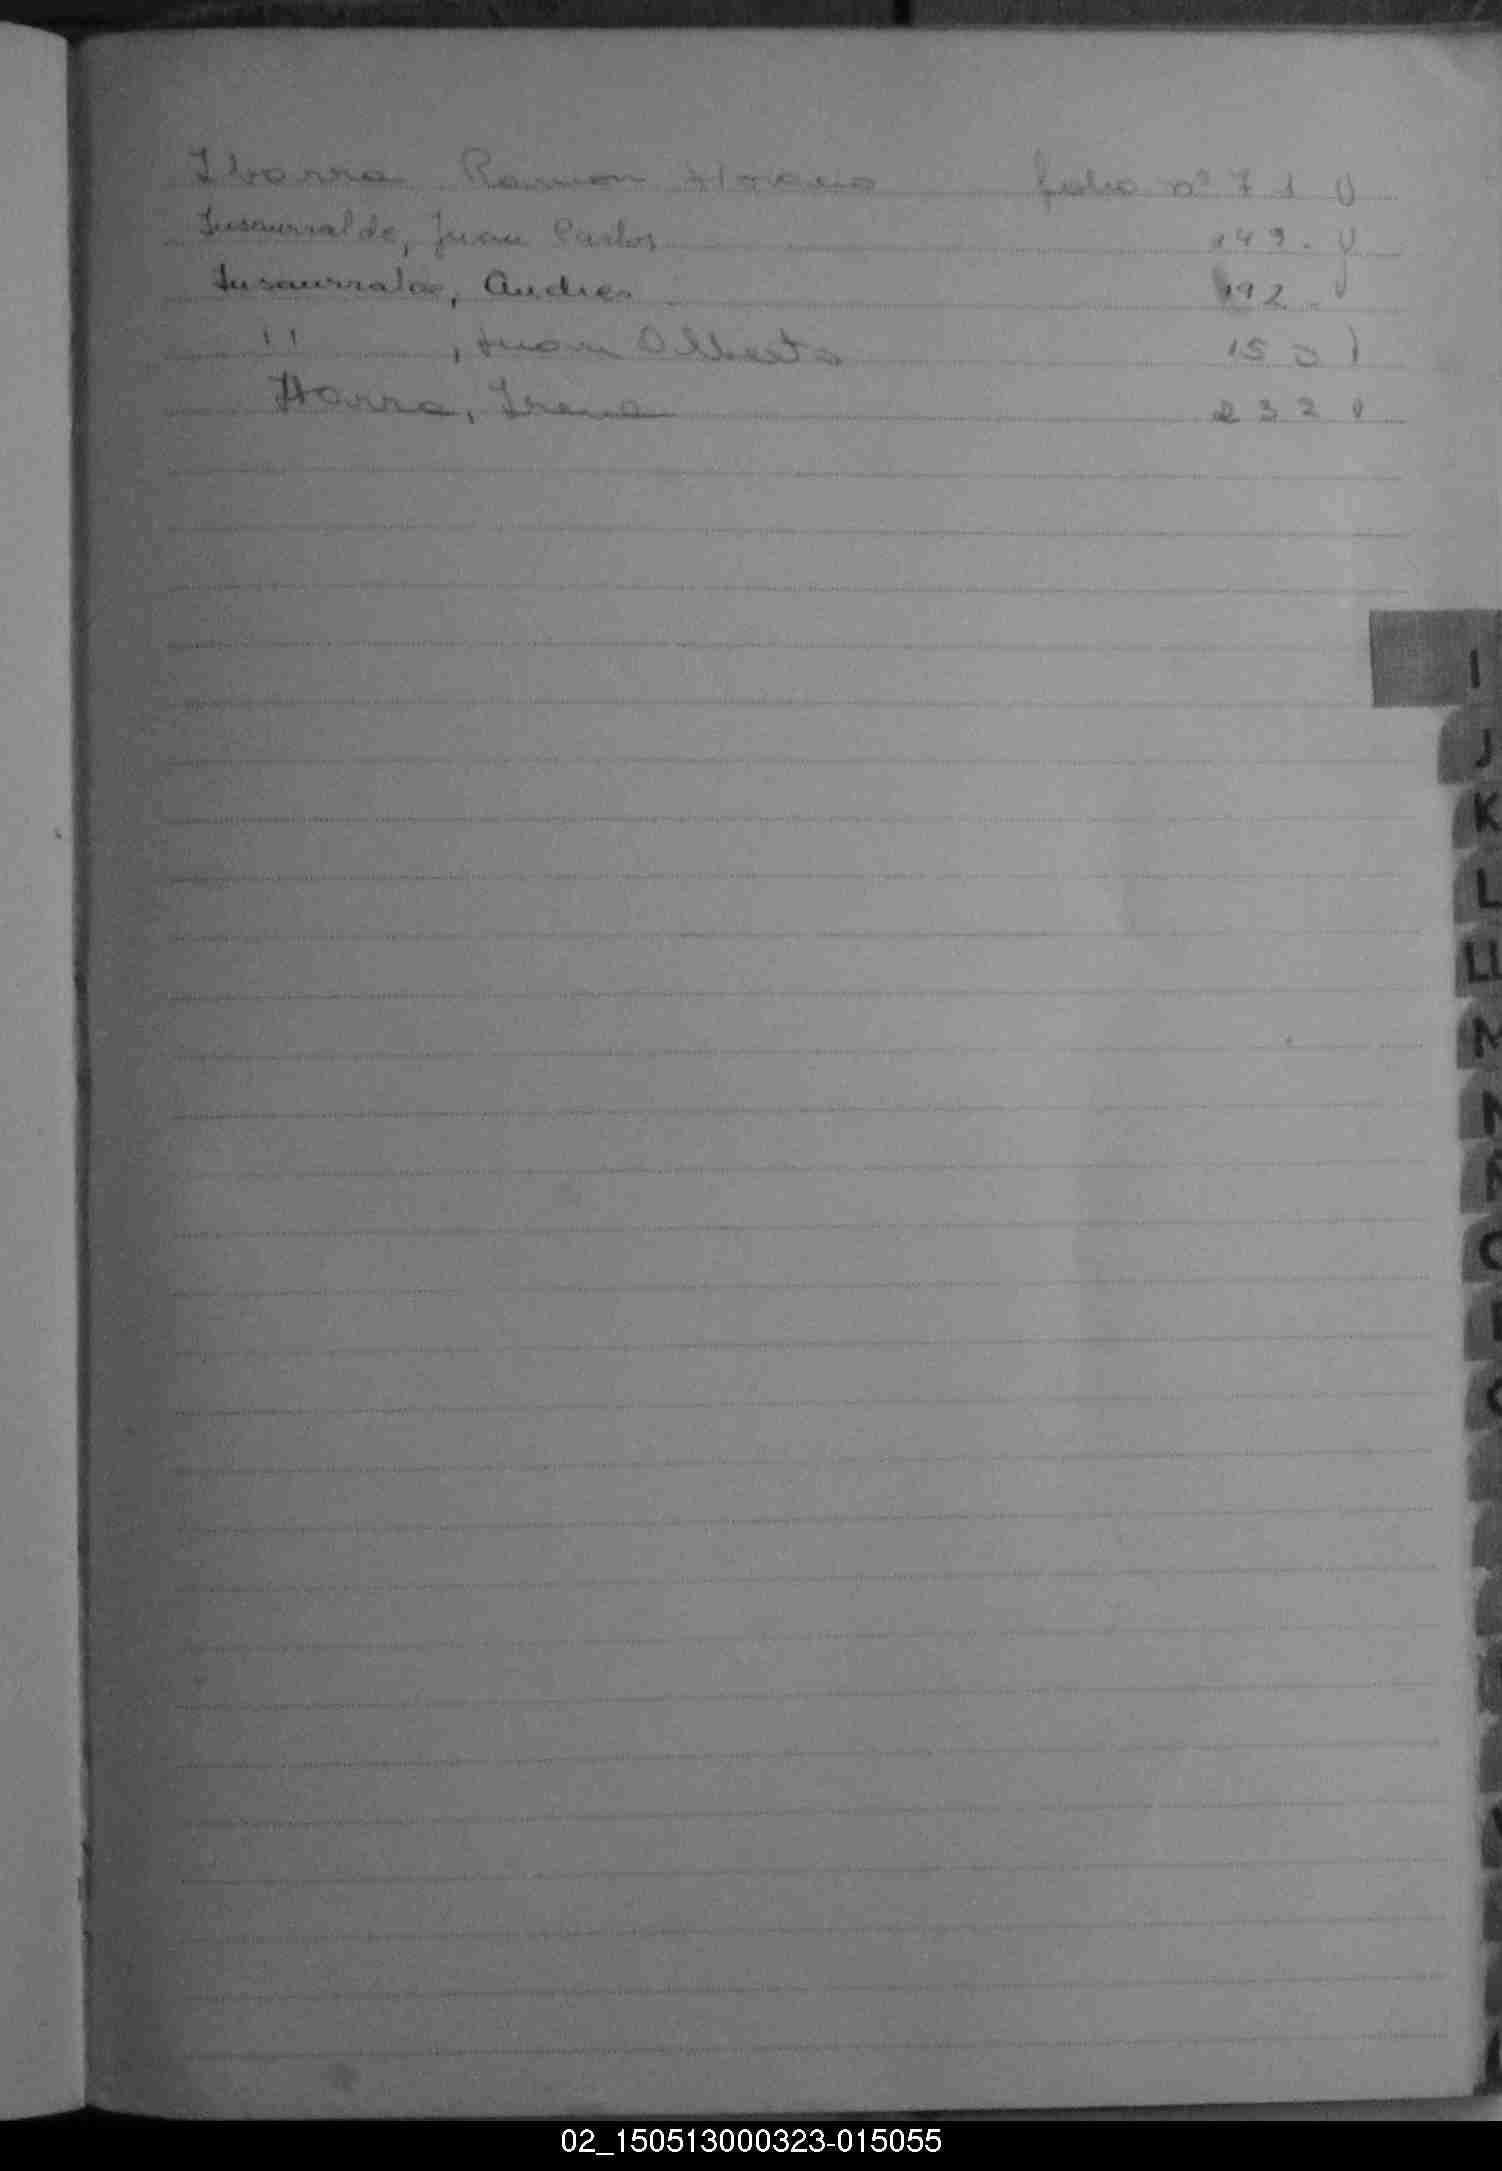 Ibarra Ramon Horacio folio nº 71
Insaurralde, Juan Carlos 149.
Insaurralde, Andres 192.
" , Juan Alberto 15
Ibarra, Irene 232
I
J
K
L
LL
M
N
Ñ
O
P
Q
02_150513000323-015055